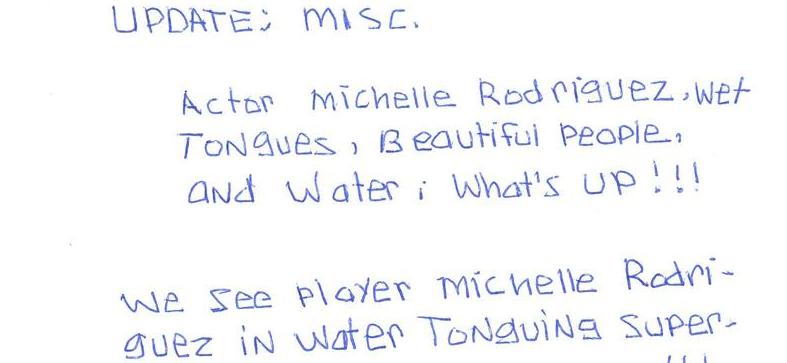 UPDATE: MISC.
Actor Michelle Rodriguez, Wet
Tongues, Beautiful People,
and Water; What's UP!!!
We see player Michelle Rodri-
guez in Water Tonguing Super-
!!!